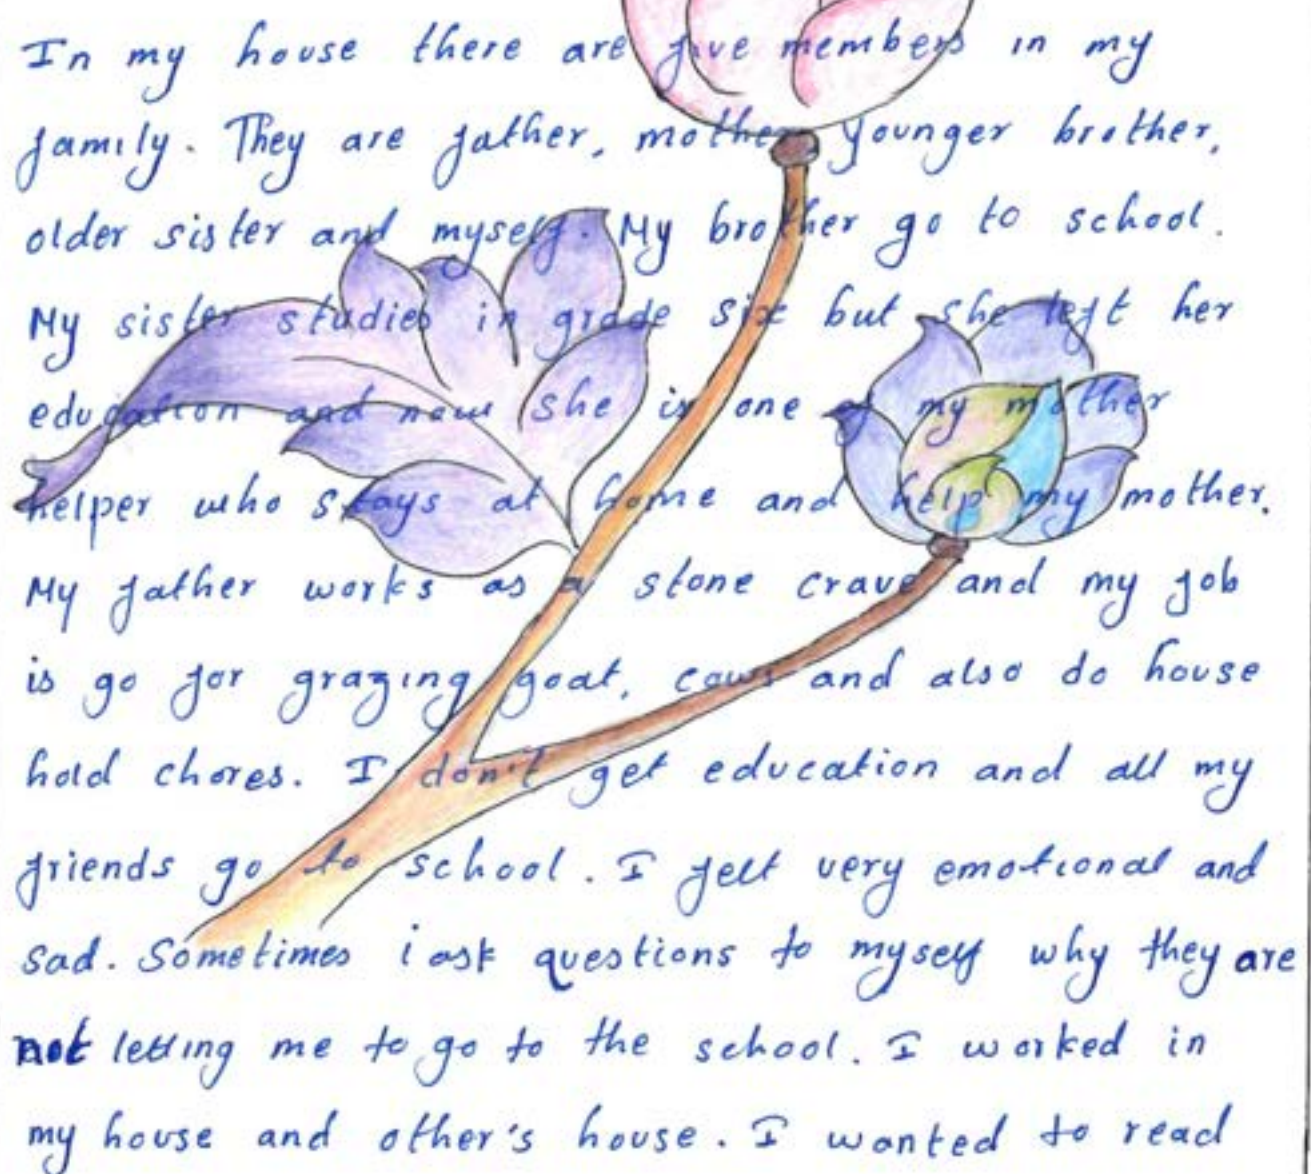 In my house there are five members in my
family. They are father, mother younger brother,
older sister and myself. My brother go to school.
My sister studies in grade six but she left her
education and now she is one of my mother
helper who stays at home and help my mother.
My father works as a stone crave and my job
is go for grazing goat, cows and also do house
hold chores. I don't get education and all my
friends go to school. I felt very emotional and
sad. Sometimes i ask questions to myself why they are
not letting me to go to the school. I worked in
my house and other's house. I wanted to read